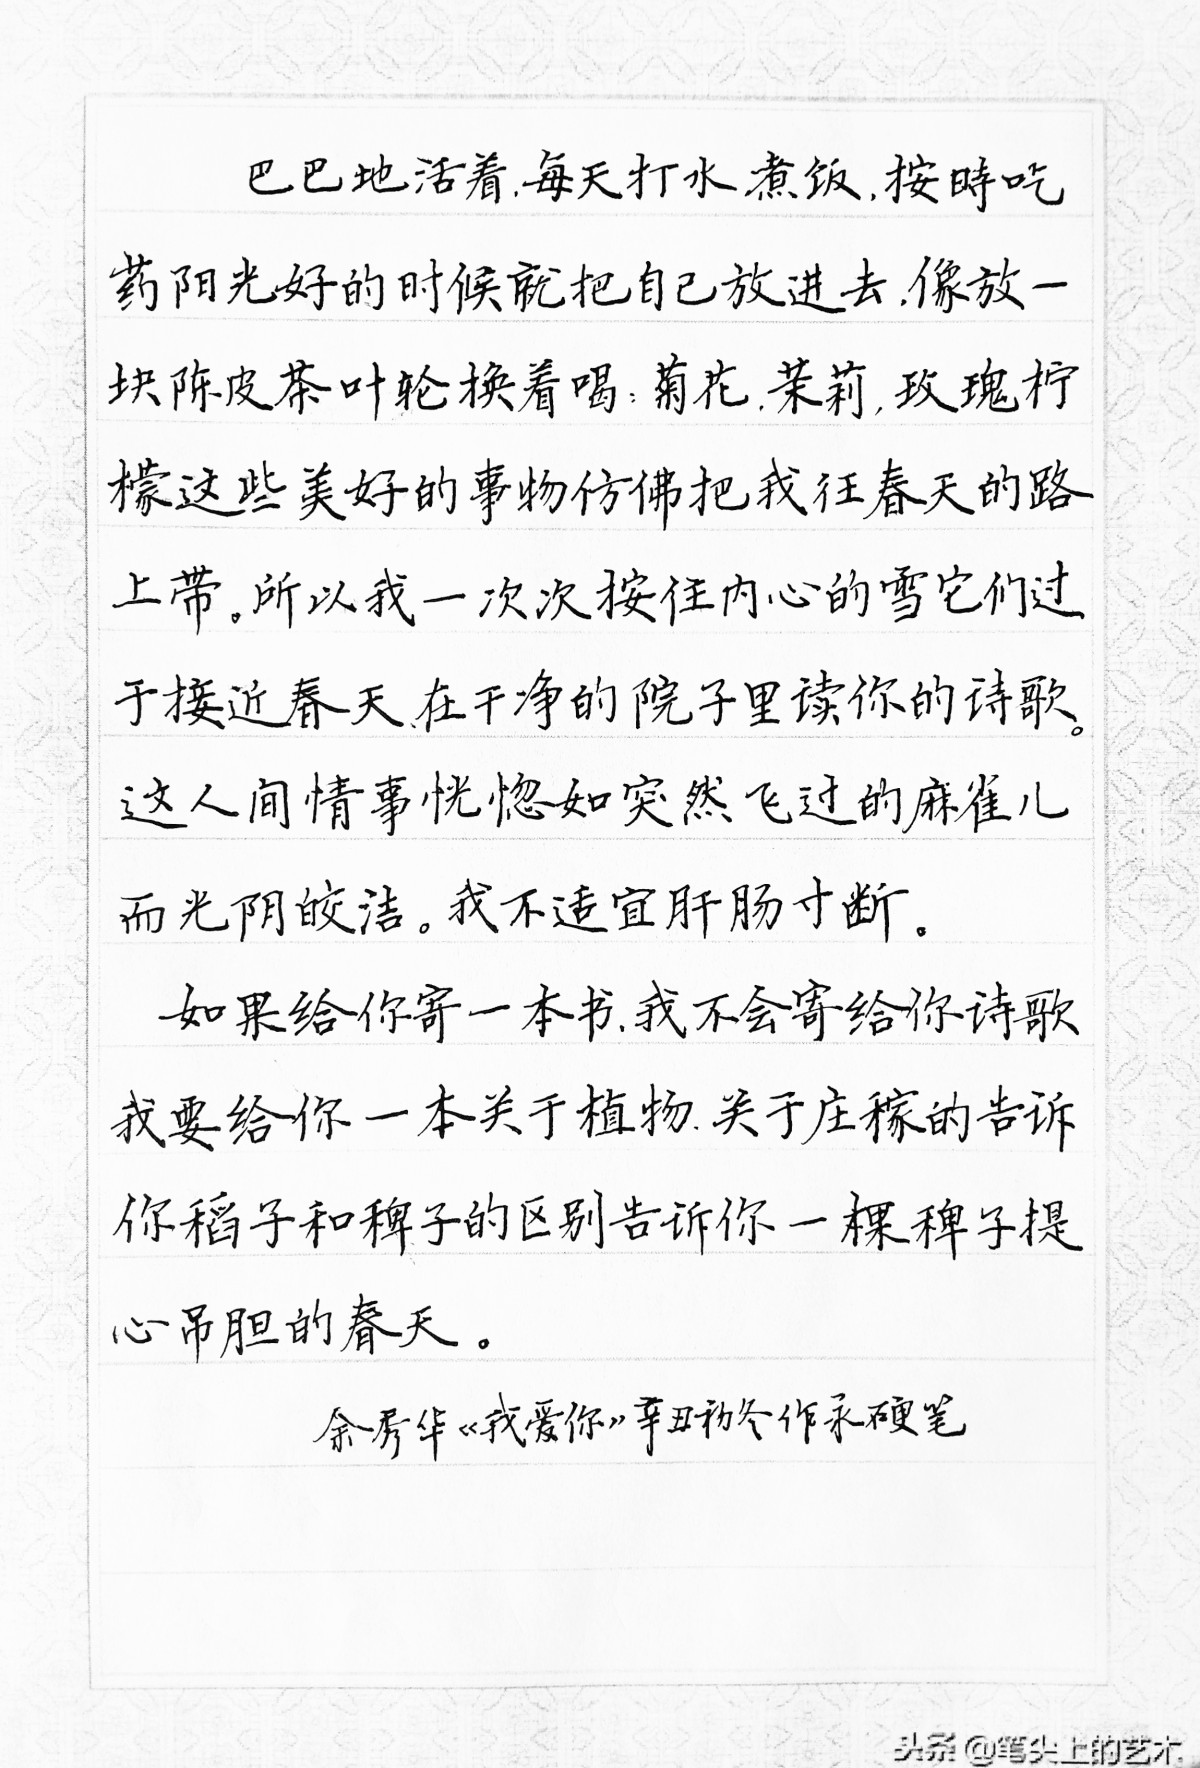 巴巴地活着,每天打水、煮饭,按時吃
药阳光好的时候就把自己放进去,像放一
块陈皮茶叶轮换着喝:菊花,茉莉,玫瑰柠
檬这些美好的事物仿佛把我往春天的路
上带。所以我一次次按住内心的雪它们过
于接近春天、在干净的院子里读你的诗歌。
这人间情事恍惚如突然飞过的麻雀儿
而光阴皎洁。我不适宜肝肠寸断。
如果给你寄一本书、我不会寄给你诗歌
我要给你一本关于植物、关于庄稼的告诉
你稻子和稗子的区别告诉你一棵稗子提
心吊胆的春天。
余秀华《我爱你》辛丑初冬作永硬笔
头条@笔尖上的艺术